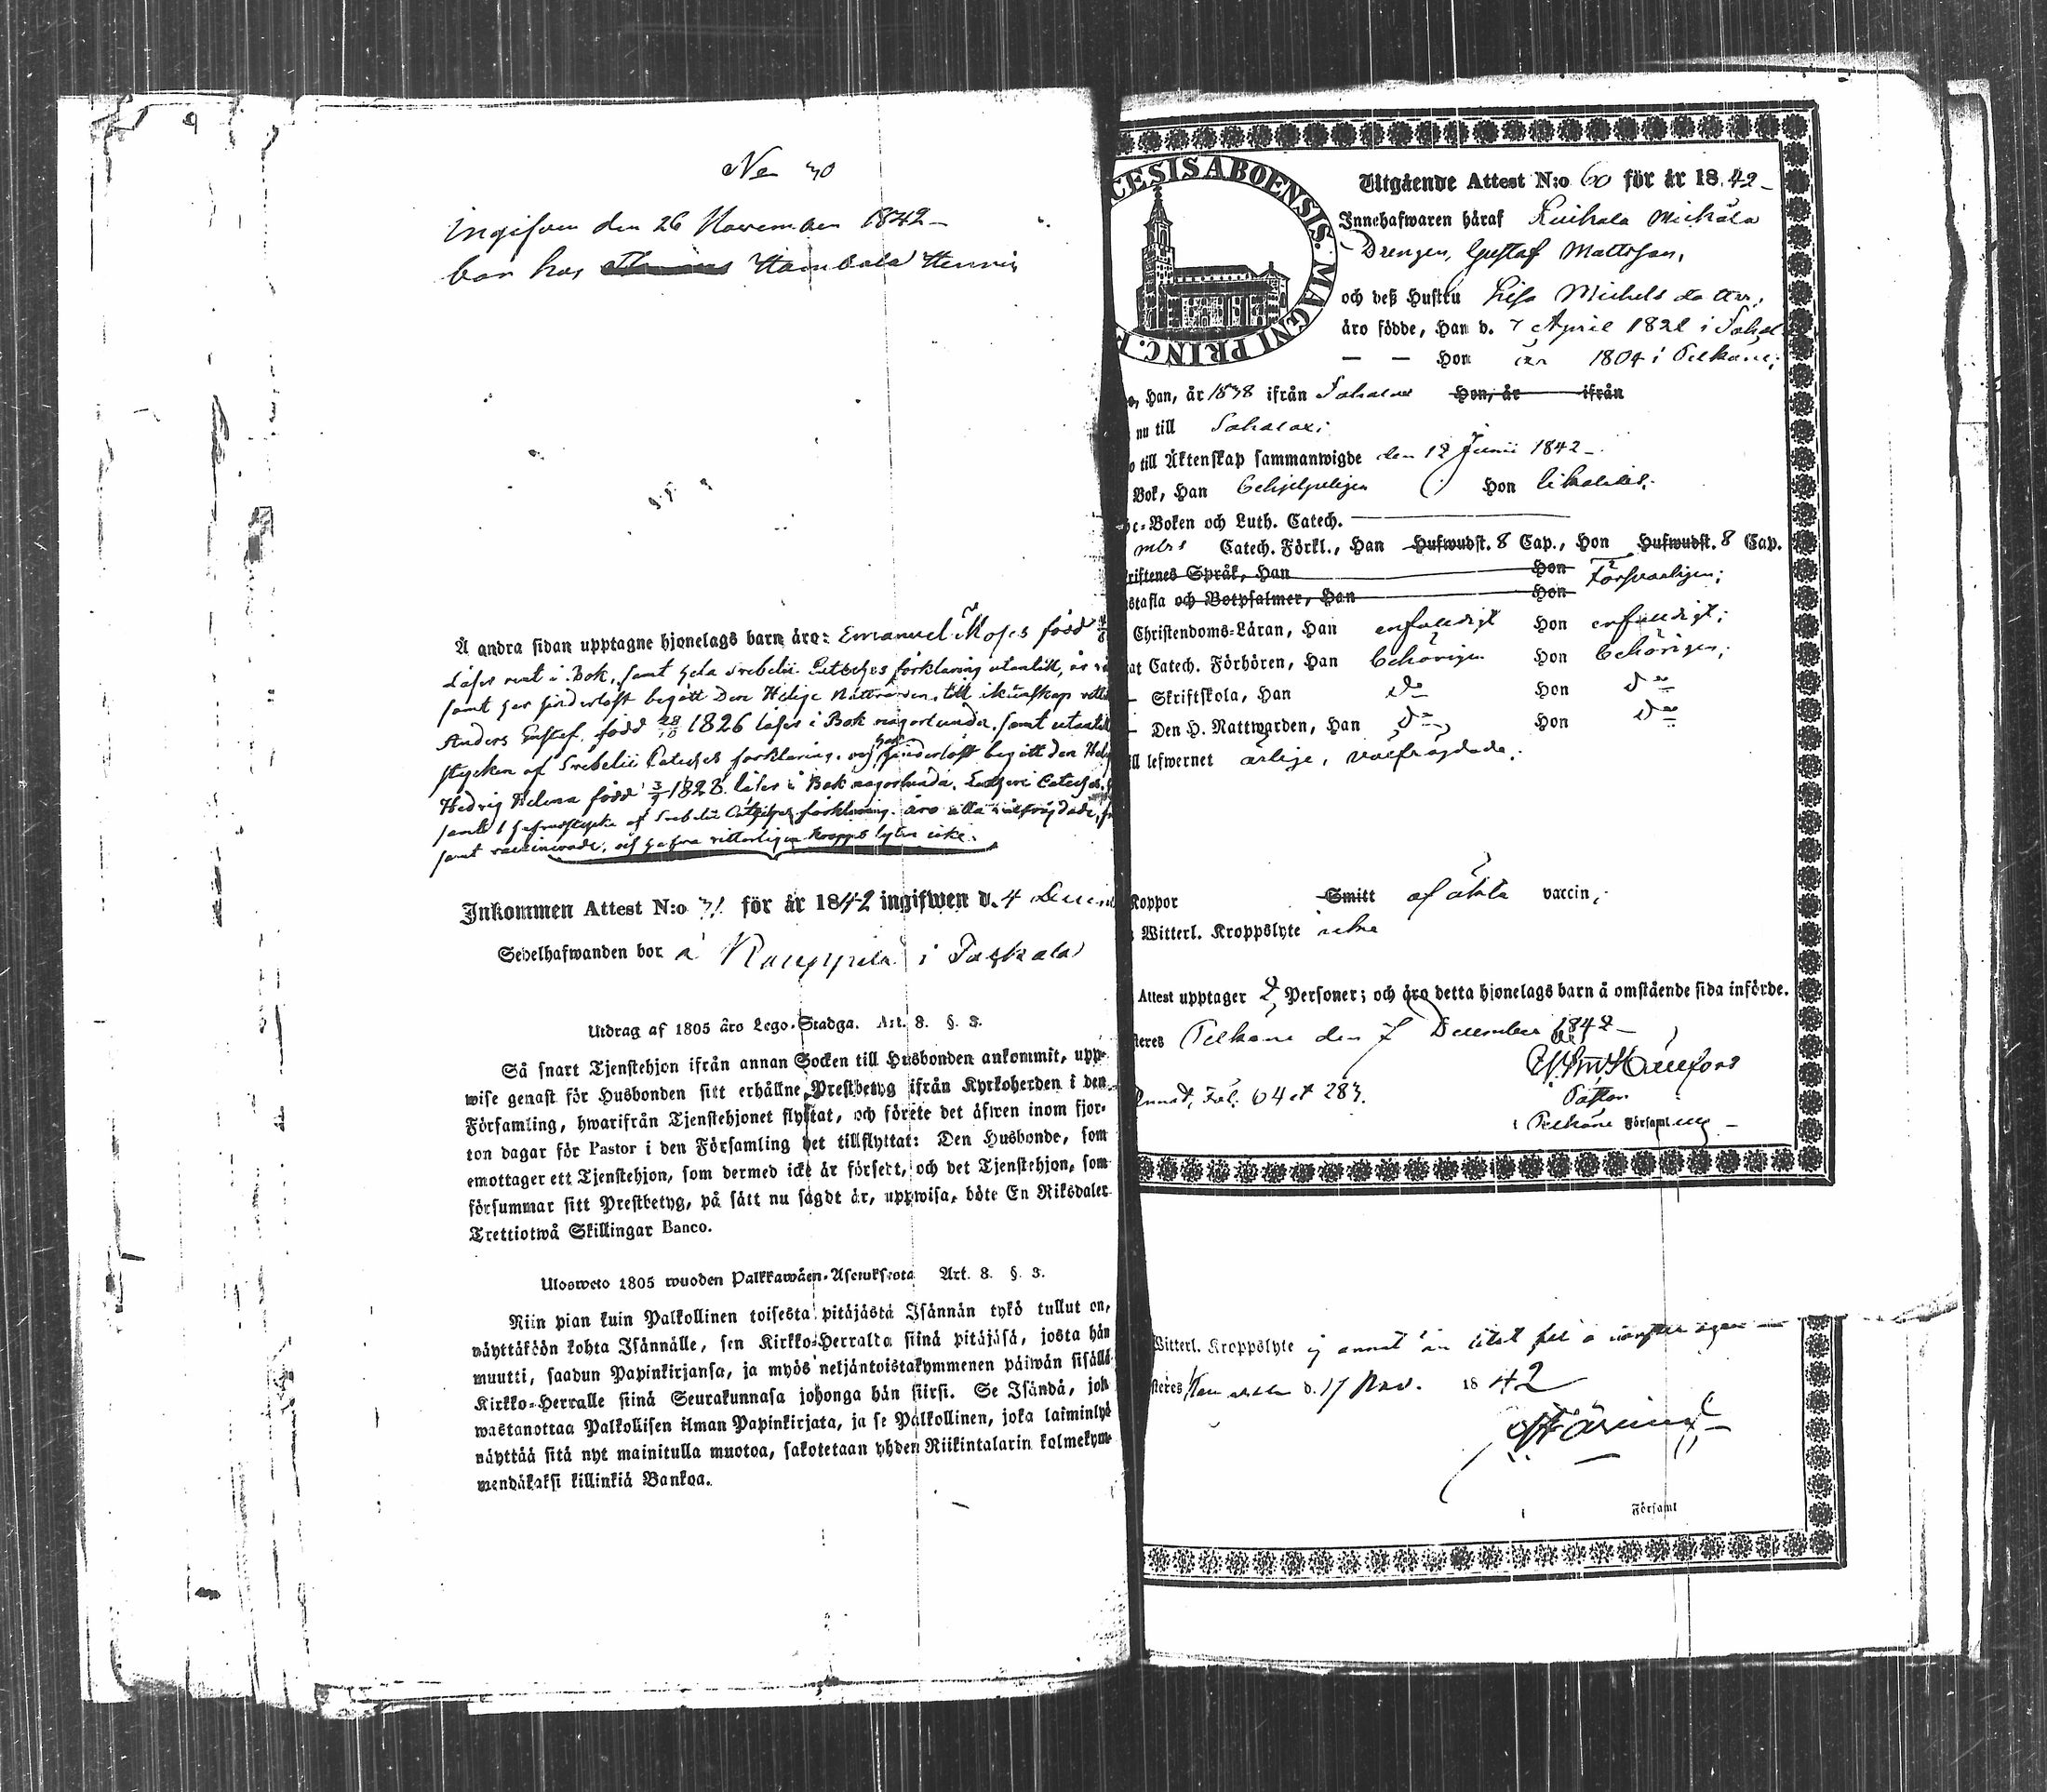 No 70
Ingifven den 26 November 1842 –
bor hos Hambala Henric
Å andra sidan upptagne hjonelags barn äro: Emanuel Moses född
Läser rent i Bok, samt hela Svebelii Cateches förklaring utantill, är
samt har hinderlöst begått Den Helige Nattvarden, till
Anders Gustaf född 28/10 1826 läser i Bok någorlunda, samt utantill
stycken af Svebelii Cateches förklaring, och har hinderlöst begått den
Hedvig Helena född 3/9 1828 läser i Bok någorlunda, Lutheri Cateches
samt 1 hufvudstycke af Svebelii Cateches förklaring. äro alla välfrägdade,
samt vaccinerade, och hafva vitterligen kropps lyten icke.
Inkommen Attest N:o 71 för år 1842 ingifwen d. 4
Sedelhafwanden bor å Rauppila i
Utdrag af 1805 års Lego-Stadga. Art. 8. §. 3.
Så snart Tjenstehjon ifrån annan Socken till Husbonden ankommit, upp-
wise genast för Husbonden sitt erhållne Prestbetyg ifrån Kyrkoherden i den
Församling, hwarifrån Tjenstehjonet flyttat, och förete det äfwen inom fjor-
ton dagar för Pastor i den Församling det tillflyttat: Den Husbonde, som
emottager ett Tjenstehjon, som dermed icke är försedt, och det Tjenstehjon, som
försummar sitt Prestbetyg, på sätt nu sagdt är, uppwisa, böte En Riksdaler
Trettiotwå Skillingar Banco.
Ulosweto 1805 wuoden Palkkawäen-Asetuksesta Art. 8. §. 3.
Niin pian kuin Palkollinen toisesta pitäjästä Isännän tykö tullut on,
näyttäköön kohta Isännälle, sen Kirkko-Herralta siinä pitäjäsä, josta hän
muutti, saadun Papinkirjansa, ja myös neljäntoistakymmenen päiwän sisällä
Kirkko-Herralle siinä Seurakunnasa johonga hän siirsi. Se Isändä, jok
wastanottaa Palkollisen ilman Papinkirjata, ja se Palkollinen, joka laiminlyö
näyttää sitä nyt mainitulla muotoa, sakotetaan yhden Riikintalarin kolmekym-
mendäkaksi killinkiä Bankoa.
CESIS ABOENSIS. MAGNI PRINC. F
Utgående Attest N:o 60 för år 1842 –
Innehafwaren häraf Mickola
Drengen, Gustaf Mattsson,
och deß Hustru Lisa Michelsdotter,
äro födde, Han d. 7 April 1821 i
– – Hon år 1804 i Pelkäne;
Han, år 1838 ifrån Hon, år ifrån
nu till
till Äktenskap sammanwigde den 12 Junii 1842 –
Bok, Han behjelpeligen Hon likaledes;
Boken och Luth. Catech.
Catech. Förkl., Han Hufwudst. 8 Cap., Hon Hufwudst. 8 Cap.
riftenes Språk, Han Hon Försvarligen;
stafla och Botpsalmer, Han Hon
Christendoms-Läran, Han enfaldigt Hon enfaldigt;
at Catech. Förhören, Han behörigen Hon behörigen;
– Skriftskola, Han do Hon do
– Den H. Nattwarden, Han do Hon do
ill lefwernet ärlige, välfrägdade.
Koppor Smitt af äkta vaccin;
Witterl. Kroppslyte icke
Attest upptager 2 Personer; och äro detta hjonelags barn å omstående sida införde.
steres Pelkäne den 7 December 1842 –
Fol. 64 et 283.
Pastor
i Pelkäne Församling –
Witterl. Kroppslyte ej annat än
steres d. 17 Nov. 1842
Församl